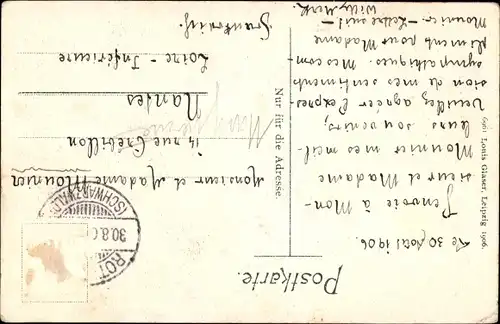 Postkarte.
Nur für die Adresse
6961 Louis Glaser, Leipzig 1906.
Le 30 Août 1906.
J'envoie à Mon-
sieur et Madame
Mounier mes meil-
leurs souvenirs,
Veuillez agréer l'expres-
sion de mes sentiments
sympathiques. Mes com-
pliments pour Madame
Mounier.
Willy Merk.
Monsieur et Madame Mounier
14 rue Crébillon
Nantes
Loire-Inférieure
Frankreich.
ROT
(SCHWARZWALD)
30.8.0